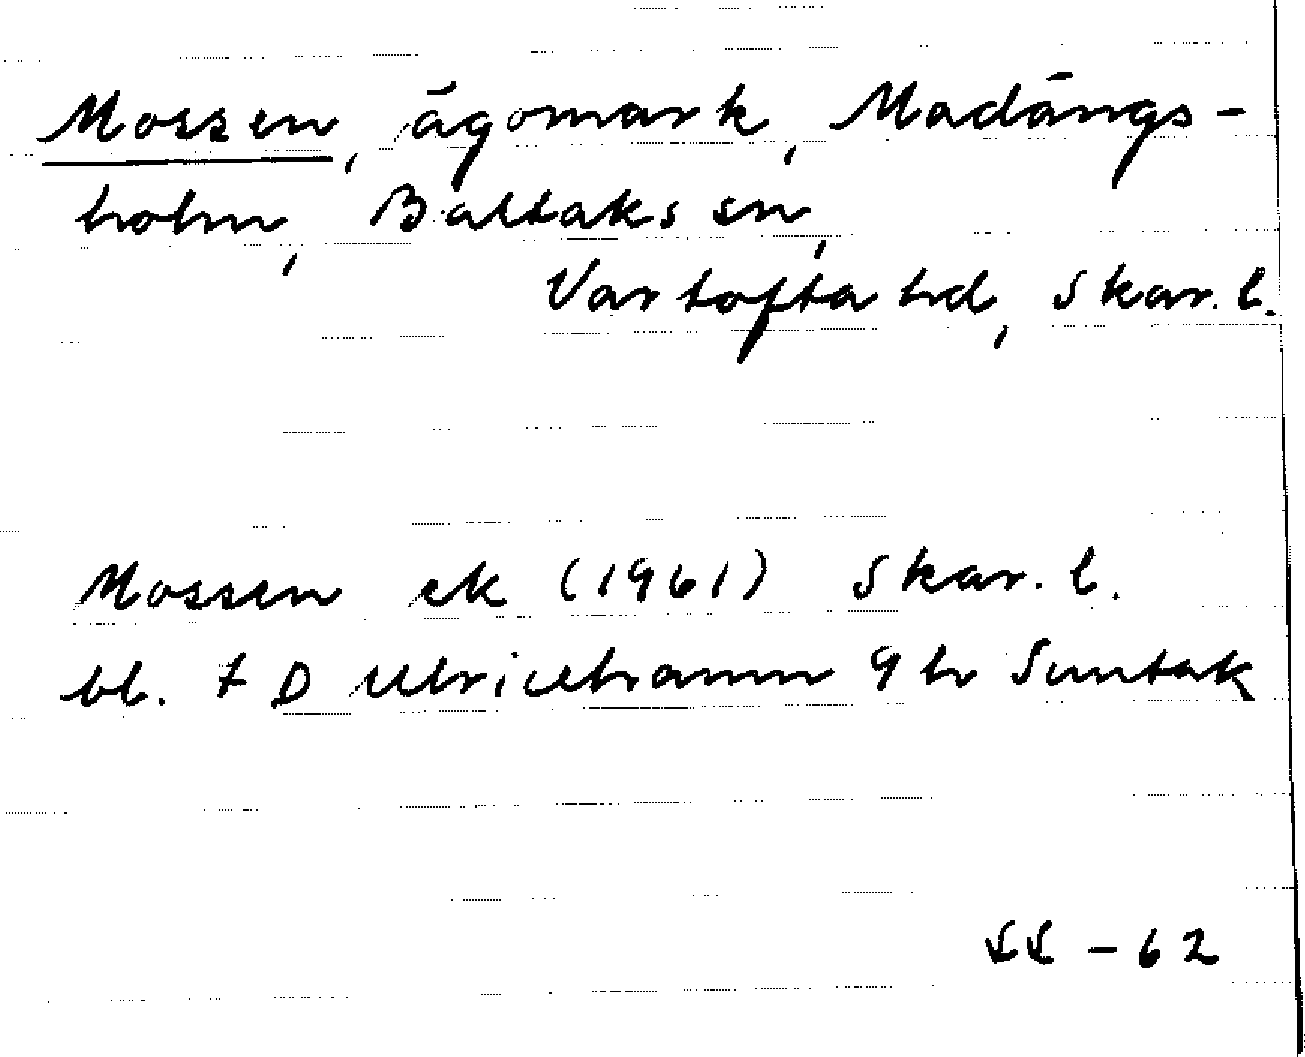 Mossen, ägomark, Madängs-
holm, Baltaks sn,
Vartofta hd, Skar. l.
Mossen ek (1961) Skar. l.
bl. 7 D Ulricehamn 9 h Suntak
SS - 62